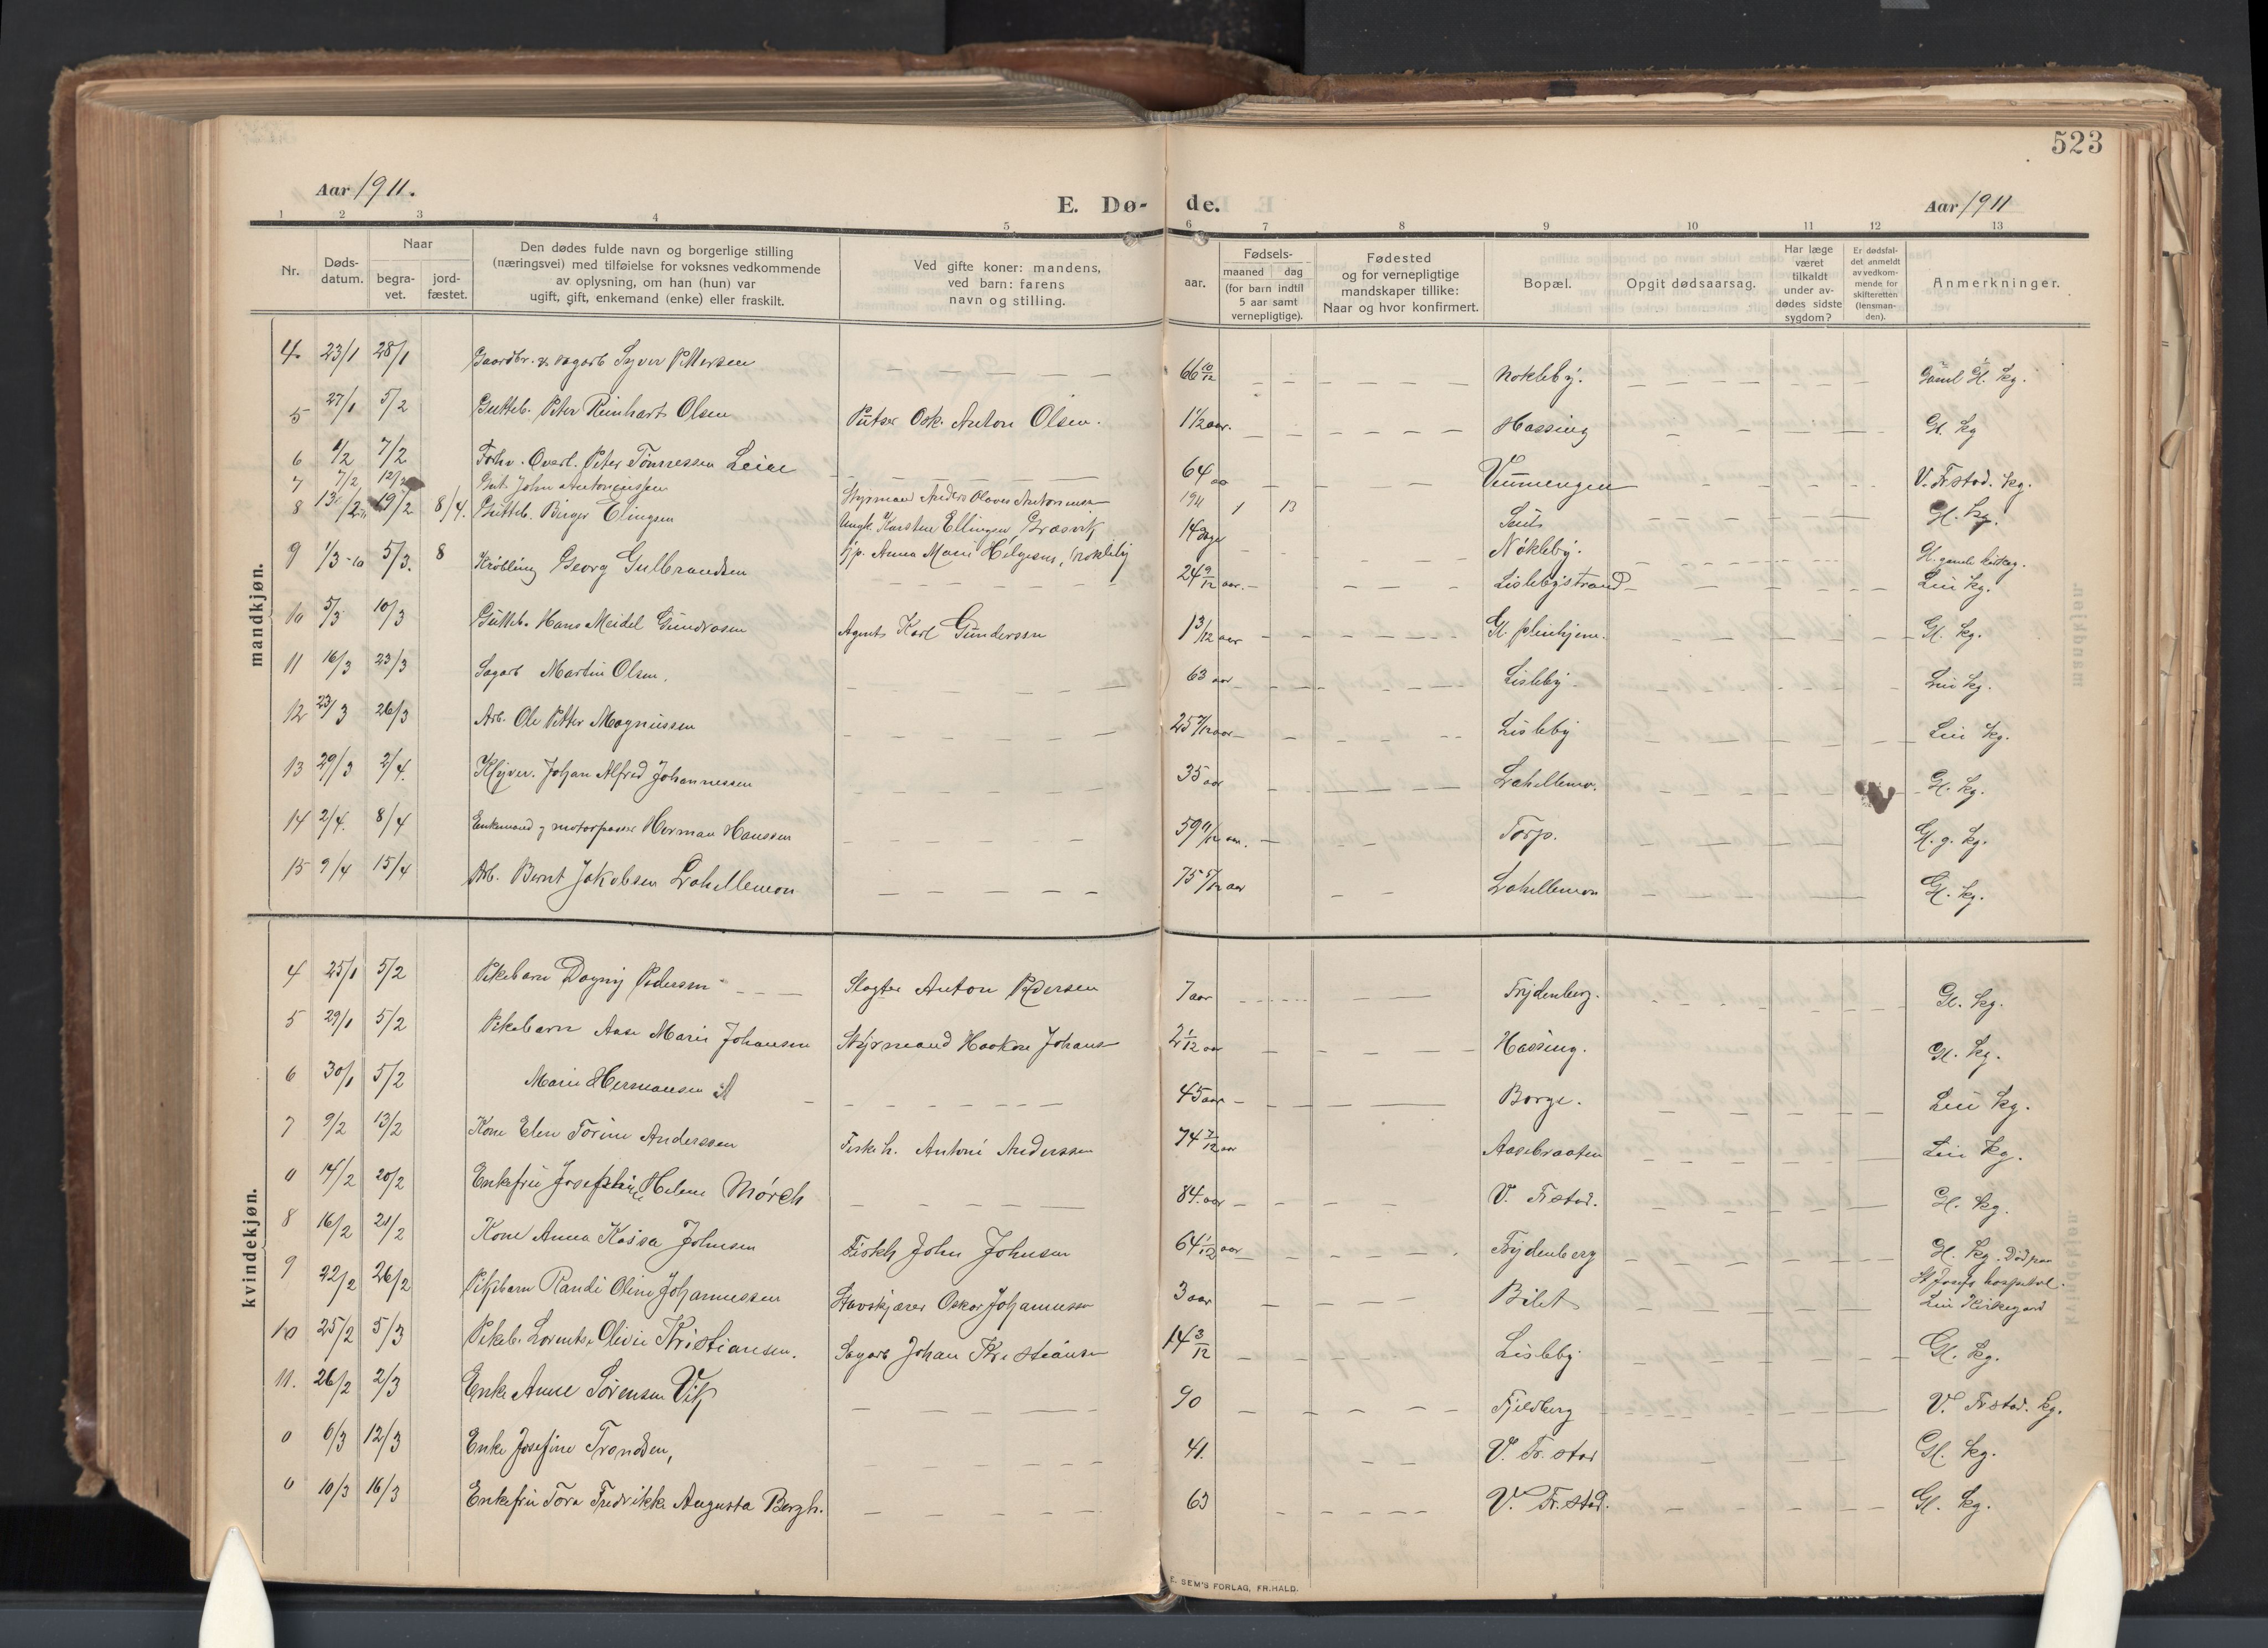 523
Aar 1911.
E. Dø-
de.
Aar 1911
1 2 3 4 5 6 7 8 9 10 11 12 13
Nr.
Døds-
datum.
Naar
begra-
vet.
jord-
fæstet.
Den dødes fulde navn og borgerlige stilling
(næringsvei) med tilføielse for voksnes vedkommende
av oplysning, om han (hun) var
ugift, gift, enkemand (enke) eller fraskilt.
Ved gifte koner: mandens,
ved barn: farens
navn og stilling.
aar.
Fødsels-
maaned dag
(for barn indtil
5 aar samt
vernepligtige).
Fødested
og for vernepligtige
mandskaper tillike:
Naar og hvor konfirmert.
Bopæl.
Opgit dødsaarsag.
Har læge
været
tilkaldt
under av-
dødes sidste
sygdom?
Er dødsfal-
det anmeldt
av vedkom-
mende for
skifteretten
(lensman-
den).
Anmerkninger.
mandkjøn.
4. 23/1 28/1 Gaardbr. & sagarb Syver Pettersen 66 10/12 Nokleby. Gaml Gl. kg.
5 27/1 5/2 Gutteb. Peter Reinhart Olsen Putser Osk. Anton Olsen. 1 1/2 aar. Hassing Gl. kg
6 1/2 7/2 Forhv. Overl. Peter Tønnessen Leiee 64 aa Vümmengen V. Frstad. kg.
7 7/2 12/2 Gut. John Antoniussen Styrmand Anders Olaves Antoniusen 1911 1 13 Gl. kg.
8 13/2 19/2 8/4. Gutteb. Birger Elingsen Ungk. Karsten Ellingsen, Græsvik 14 dage
Pp. Anna Marie Helgesen, Nokleby Nökleby. Gl. gamle kirkeg.
9 1/3 5/3. 8 Krøbling Georg Gulbrandsen 24 9/12 aar. Lislebystrand Lei kg.
10 5/3 10/3 Gutteb. Hans Meidel Gundrosen Agent Karl Gundersen 1 3/12 aar Gl. pleiehjem. Gl. kg.
11 16/3 23/3 Sagarb Martin Olsen. 63 aar Lisleby Lei kg.
12 23/3 26/3 Arb. Ole Petter Magnussen 25 7/12 aar Lisleby Lei kg.
13 29/3 2/4. Klyver. Johan Alfred Johannessen 35 aar Lahellemo. Gl. kg.
14 2/4. 8/4 Enkemand og motorpasser Herman Hanssen 59 11/12 aar. Torp. Gl. g. kg.
15 9/4 15/4 Arb. Bernt Jakobsen Lahellemon 75 5/12 aar Lahellemon Gl. kg.
kvindekjøn.
4 25/1 5/2 Pikebarn Dagny Pedersen Slagter Anton Pedersen 7 aar Frydenberg. Gl. kg.
5 29/1 5/2 Pikebarn Aase Marie Johansen Styrmand Haakon Johans 2 1/12 aar Hassing. Gl. kg.
6 30/1 5/2 Marie Hermansen 45 aar Borge. Lei kg.
7 9/2 13/2 Kone Elen Torine Anderssen Fiskeh. Antoni Anderssen 74 7/12 aar Aasebraaten Lei kg.
0 14/2 20/2 Enkefru Josephine Helene Mørch 84. aar V. Frstad. Gl. kg.
8 16/2 21/2 Kone Anna Kaisa Johnsen Fiskh John Johnsen 64 1/12 aar Frydenberg Gl. kg. Död paa
St Josefs hospital.
9 22/2 26/2 Pikebarn Randi Oline Johannessen Stavskjærer Oskar Johannessen 3 aar Bilet Lei Kirkegaard
10 25/2 5/3 Pikeb. Lorentse Olivie Kristiansen. Sagarb Johan Kristiansen 14 3/12 Lisleby Gl. kg.
11. 26/2 2/3 Enke Anne Sørensen Vik 90 Fjeldberg V. Frstad. kg.
0 6/3 12/3 Enke Josefine Trondsen, 41. V. Fr. stad Gl. kg.
0 10/3 16/3 Enkefru Tora Fredrikke Augusta Bergh. 63 V. Fr. stad. Gl. kg.
E. SEM'S FORLAG, FR.HALD.